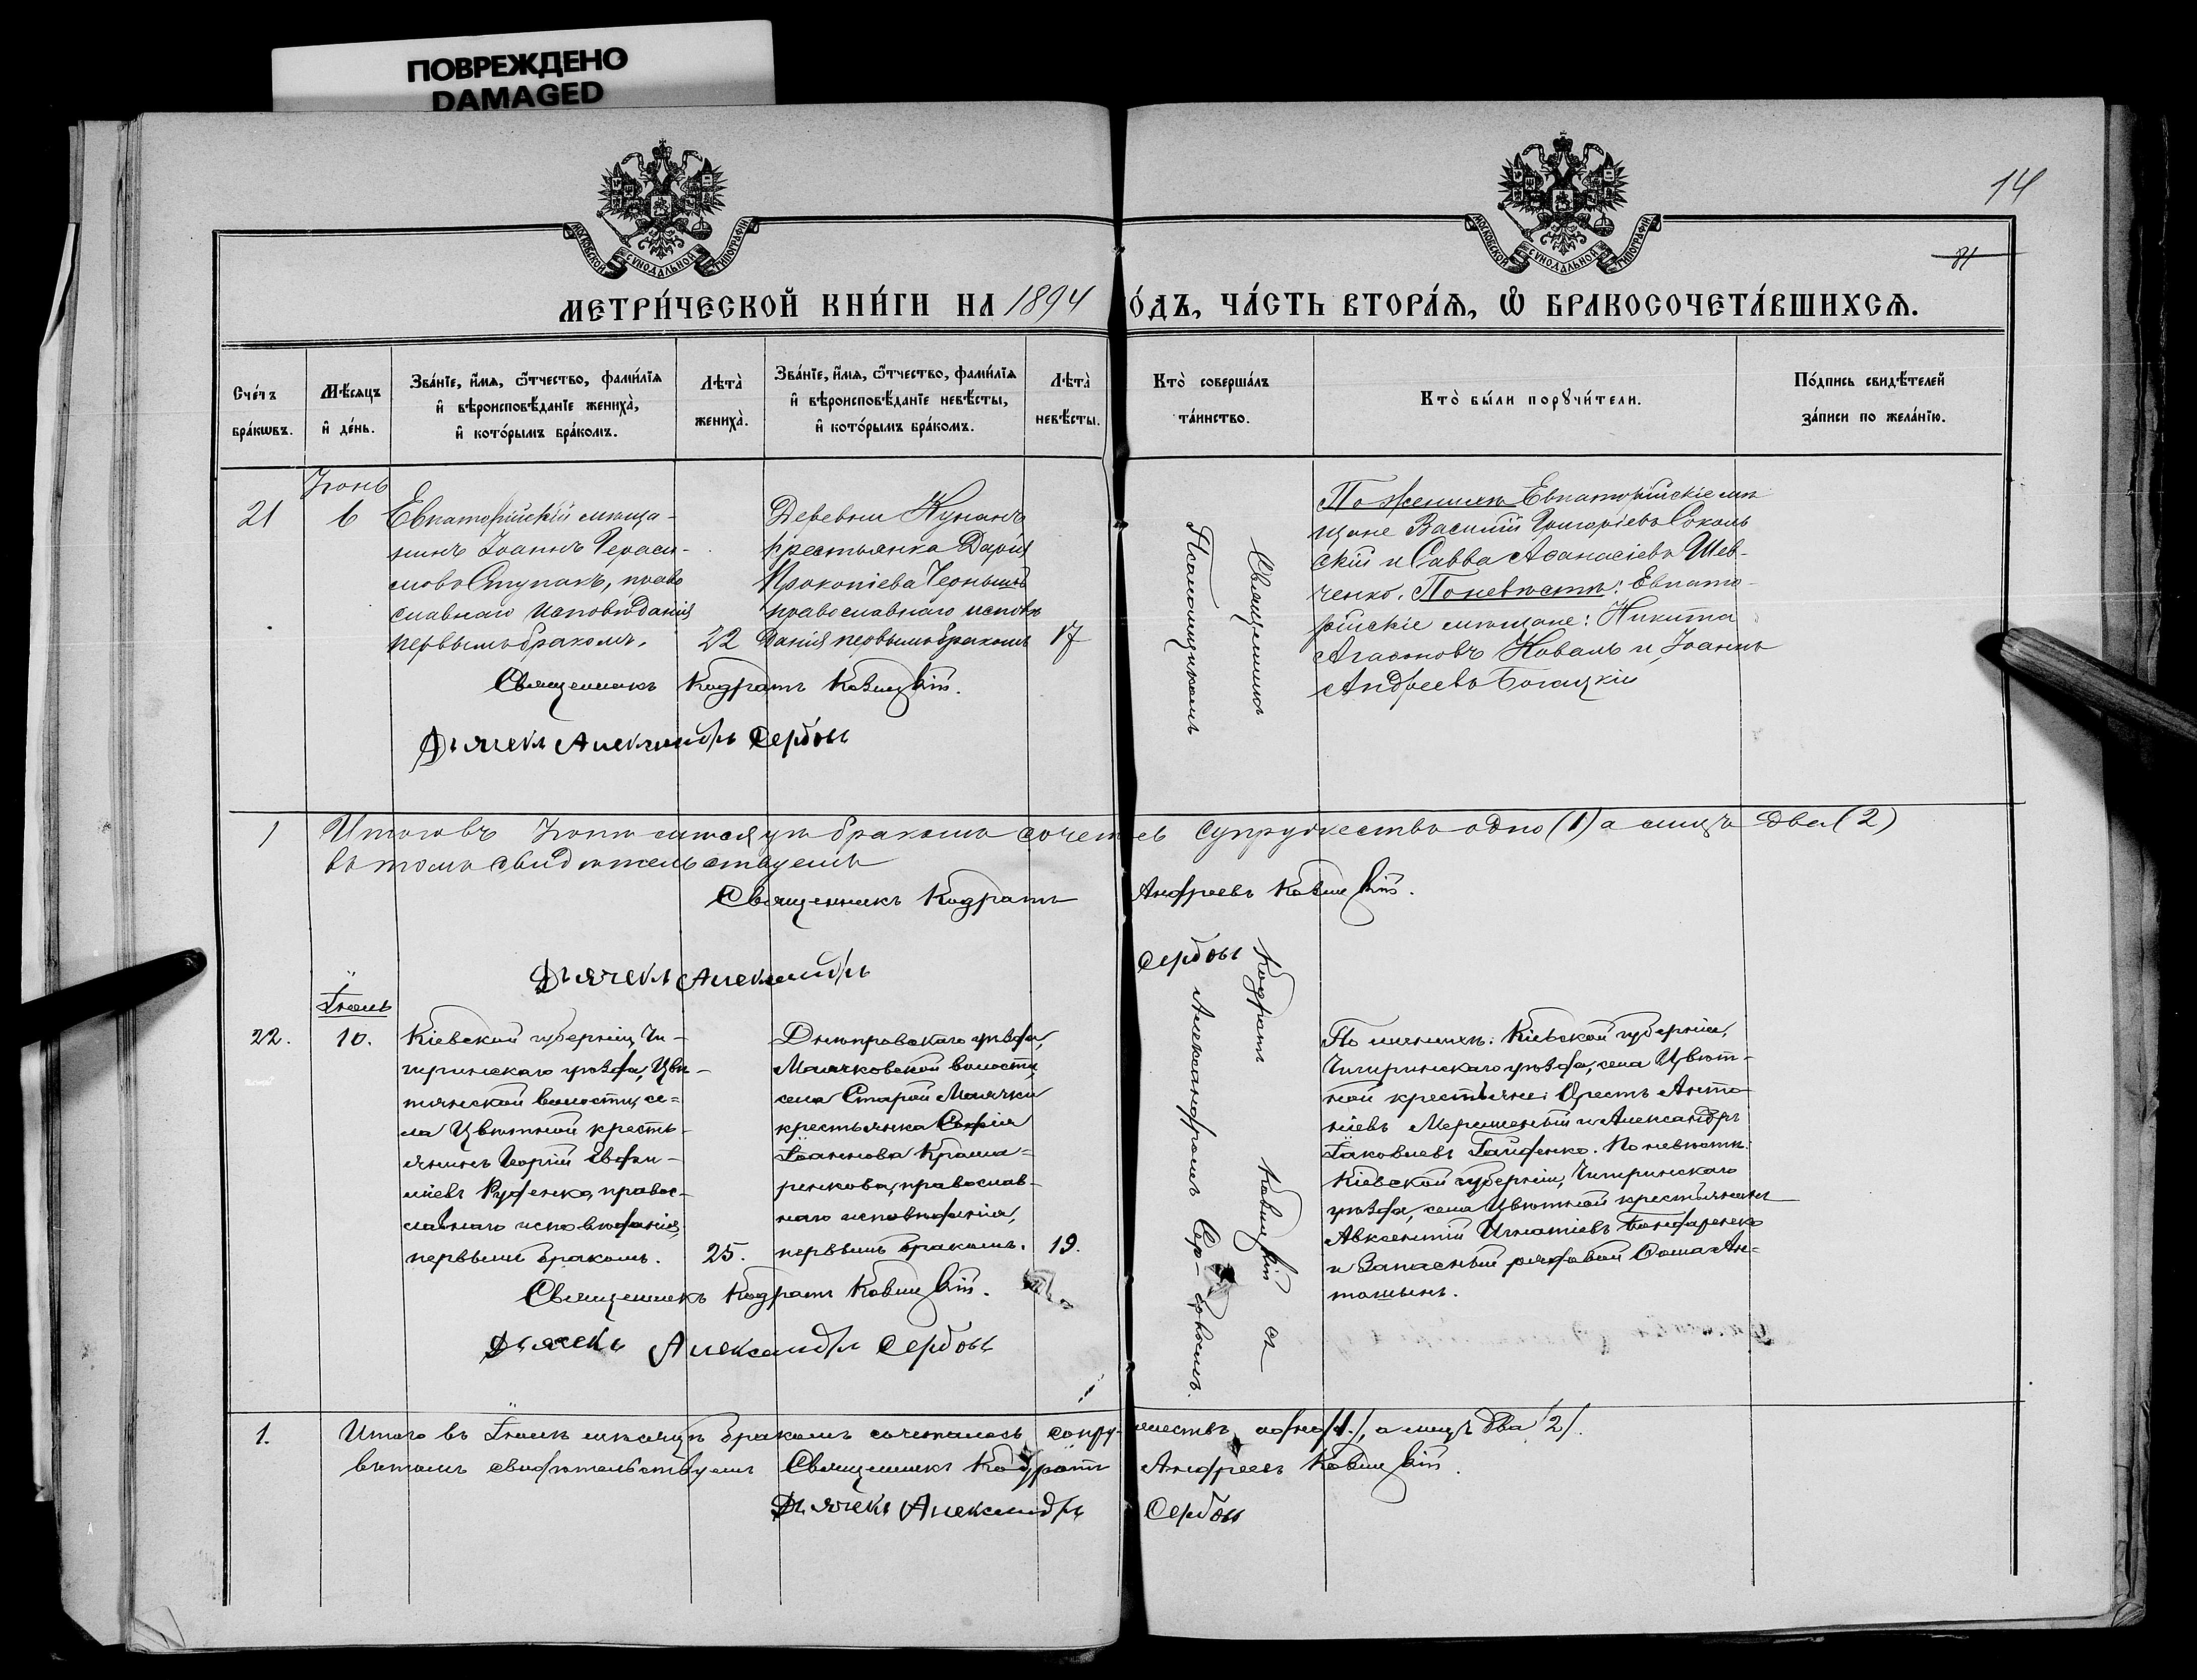 ПОВРЕЖДЕНО
DAMAGED
МОСКОВСКОЙ СѴНОДАЛЬНОЙ ТИПОГРАФІИ
МОСКОВСКОЙ СѴНОДАЛЬНОЙ ТИПОГРАФІИ
14
МЕТРИ́ЧЕСКОЙ КНИ́ГИ НА 1894 О́ДЪ, ЧА́СТЬ ВТОРА́Я, Ѿ БРАКОСОЧЕТА́ВШИХСЯ.
Сче́тъ бра́кѡвъ.
Мѣ́сяцъ и҆ де́нь.
Зва́нїе, и҆́мя, ѻ҆́тчество, фами́лїя и҆ вѣроисповѣ́данїе жениха̀, и҆ кото́рымъ бра́комъ.
Лѣта̀ жениха̀.
Зва́нїе, и҆́мя, ѻ҆́тчество, фами́лїя и҆ вѣроисповѣ́данїе невѣ́сты, и҆ кото́рымъ бра́комъ.
Лѣта̀ невѣ́сты.
Кто̀ соверша́лъ та́инство.
Кто̀ бы́ли порꙋчи́тели.
По́дпись свидѣ́телей за́писи по жела́нїю.
21
Іюнь
6
Евпаторійскій мѣща-
нинъ Іоаннъ Гераси-
мовъ Ступакъ, право
славнаго исповѣданія
первымъ бракомъ.
22
Деревни
крестьянка Дарія
Прокопіева
православнаго исповѣ
данія первымъ бракомъ
17
Священникъ
Помощникомъ
По женихѣ Евпаторійскіе мѣ
щане Василій Григоріевъ Соколь
скій и Савва Аѳанасіевъ Шев-
ченко. По невѣстѣ: Евпато-
рійскіе мѣщане: Никита
Агаѳоновъ Коваль и Іоаннъ
Андреевъ Богацкій
Священникъ Кодратъ
Дьячекъ Александръ Сербов
1
Итого въ Іюнѣ мѣсяцѣ бракомъ сочет сь супружество одно (1) а лицъ два (2)
въ томъ свидѣтельствуемъ
Священникъ Кодратъ Андреевъ
Дьячекъ Александръ Сербов
22.
Іюль
10.
Кіевской губерніи, Чи-
гиринскаго уѣзда, Цвѣ-
тянской волости, се-
ла Цвѣтной кресть-
янинъ Георгій Евфи-
міевъ Руденко, правос-
славнаго исповѣданія,
первымъ бракомъ.
25.
Днѣпровскаго уѣзда,
Маячковской волости,
села Старой Маячки
крестьянка Софія
Іоаннова Крама-
ренкова, православ-
наго исповѣданія,
первымъ бракомъ.
19.
Кодратъ съ
Александромъ Сер-
По женихѣ: Кіевской губерніи,
Чигиринскаго уѣзда, села Цвѣт-
ной крестьяне: Орестъ Анто-
ніевъ и Александръ
Іаковлевъ Гайденко. По невѣстѣ:
Кіевской губерніи, Чигиринскаго
уѣзда, села Цвѣтной крестьянинъ
Авксентій Игнатіевъ Бондаренко
и Запасный рядовой Ѳома Ан-
Священникъ Кодратъ
Дьячекъ Александръ Сербов
1.
Итого въ Іюлѣ мѣсяцѣ бракомъ сочеталось супру- жествъ одно /1./, а лицъ два /2/.
въ томъ свидѣтельствуемъ Священникъ Кодратъ Андреевъ
Дьячекъ Александръ Сербов